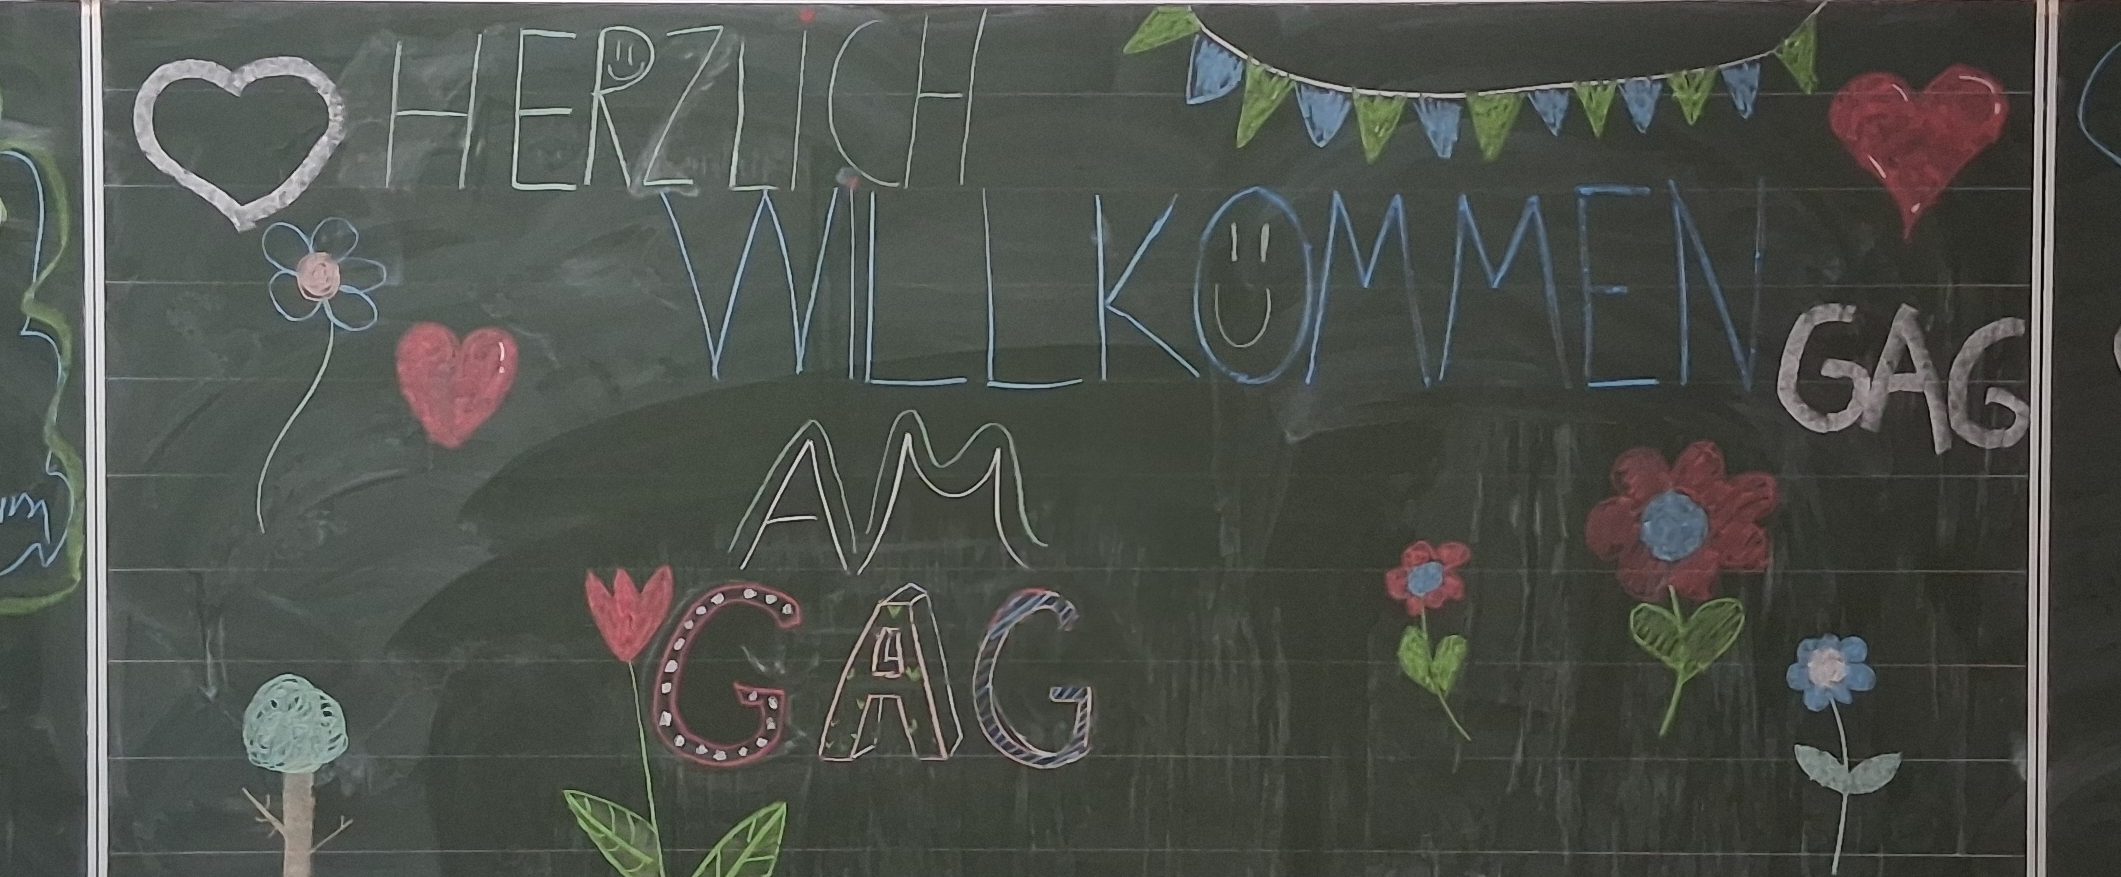 HERZLICH
WILLKOMMEN
GAG
AM
GAG